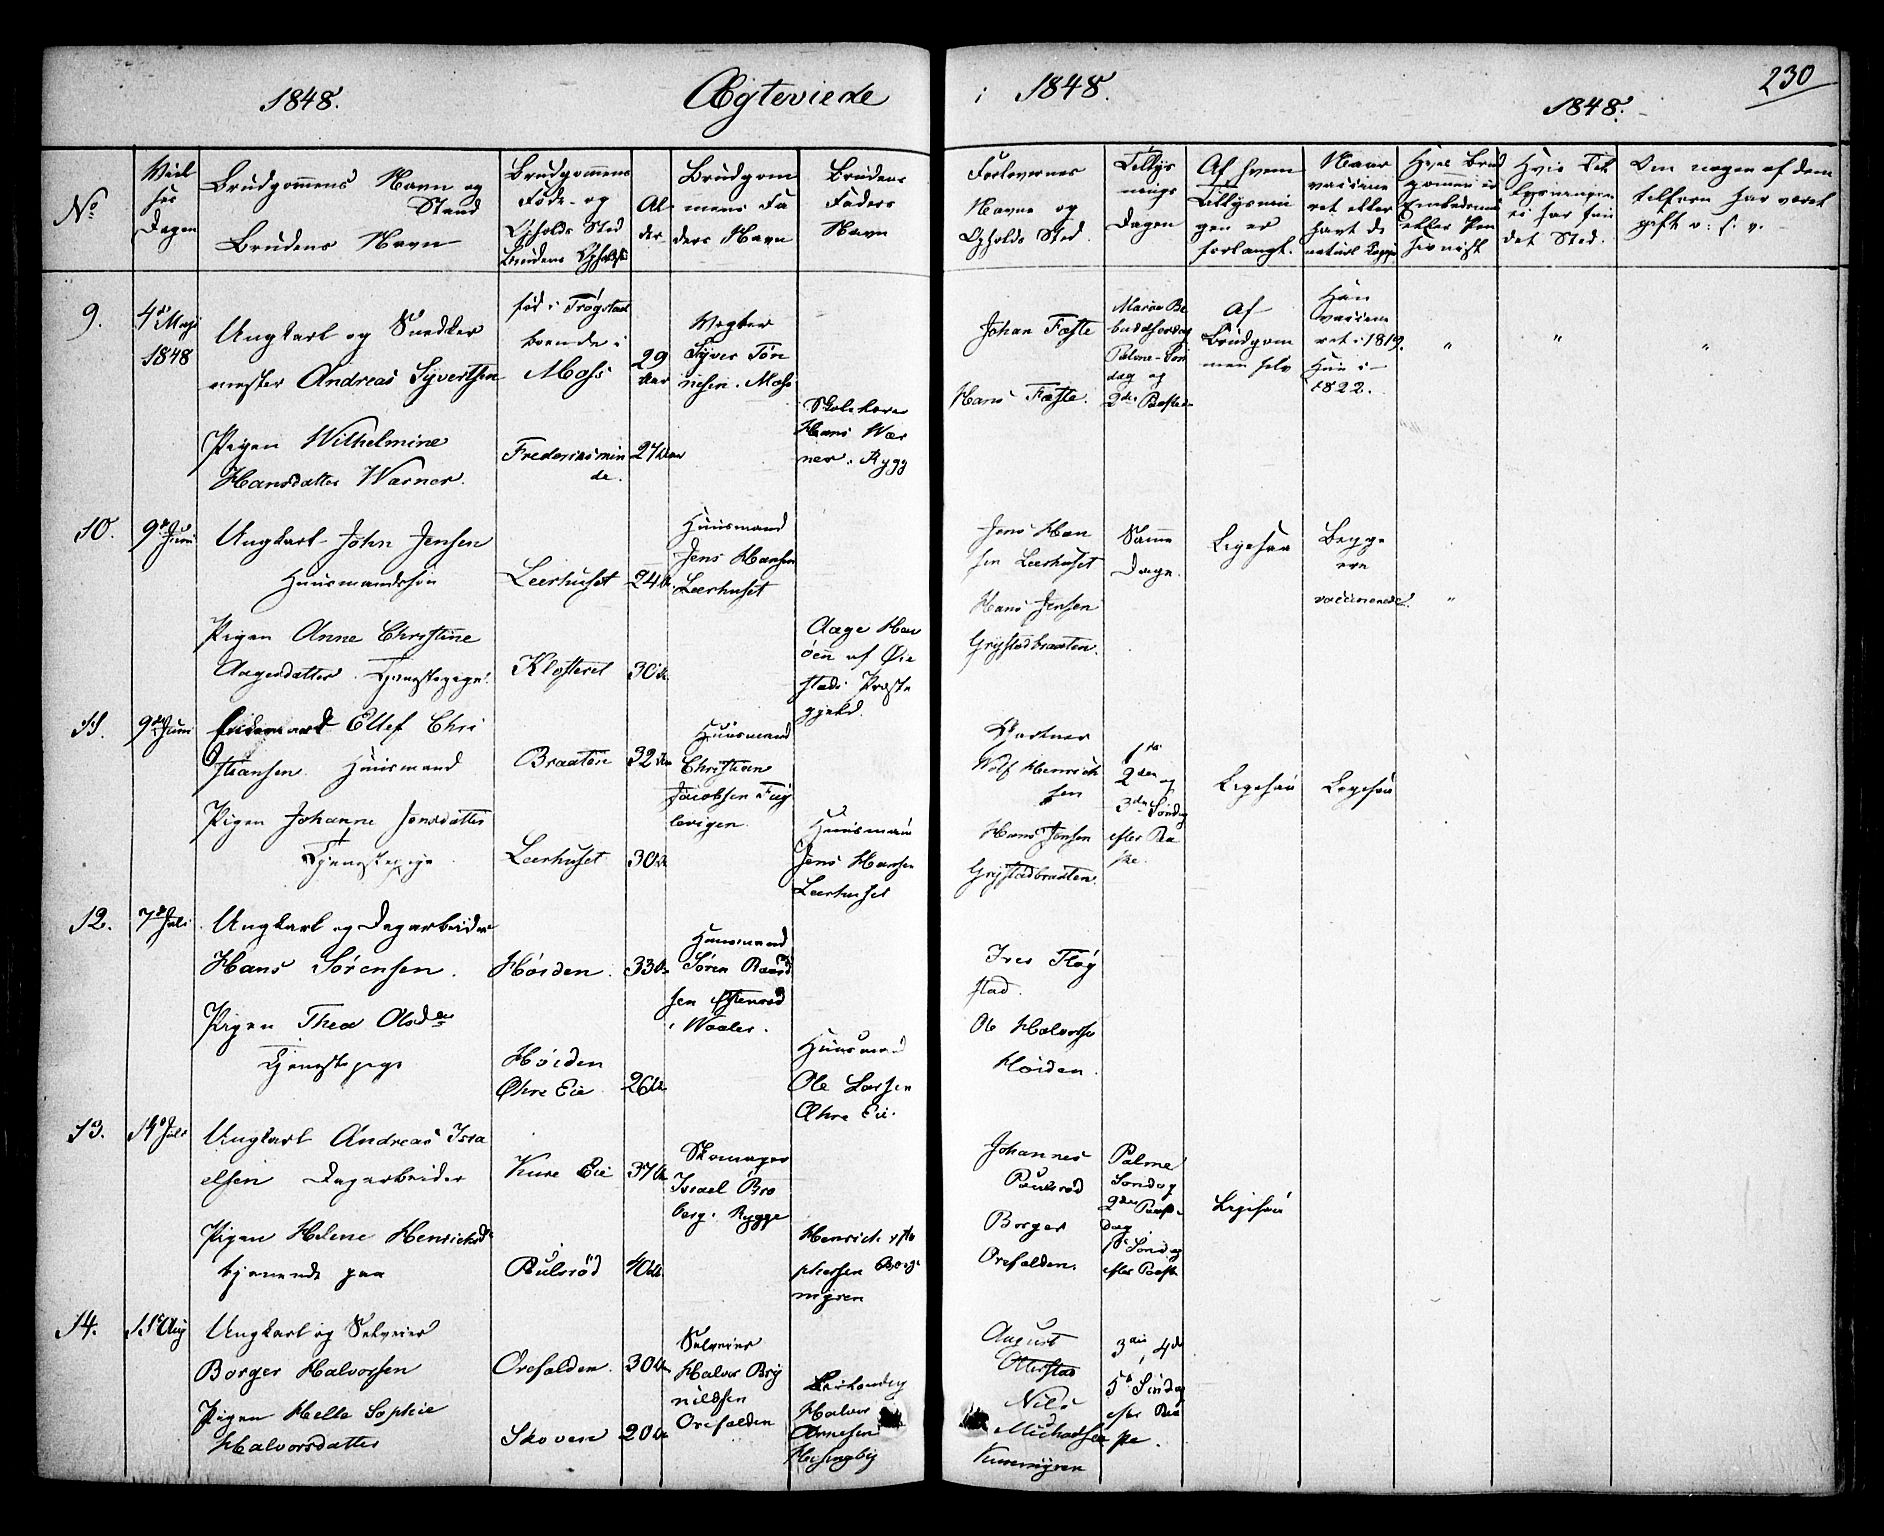 1848.
Ægteviede
i 1848.
1848.
230
No
Viel
ses
Dagen
Brudgommens Navn og
Stand
Brudens Navn
Brudgommens
Føde- og
Opholds Sted
Brudens Opholdst
Al
der
Brudgom
mens Fa
ders Navn
Brudens
Faders
Navn
Forlovernes
Navne og
Opholds Sted.
Tillys
nings
Dagen
Af hvem
Tillysnin
gen er
forlangt.
Naar
vaccine
ret eller
havt de
naturl. Kopper
Hvis Brud
gommen er
Embedsmand
eller Pen
sionist
Hvis Til
lysningen
ei har fun
det Sted.
Om nogen af dem
tilforn har været
gift o: s: v.
9.
4de Maji
1848
Ungkarl og Snedker
mester Andreas Syvertsen
Pigen Wilhelmine
Hansdatter Warner.
fød i Trøgstad
boende i
Moss
Fredensmin
de.
29
Aar
27 Aar
Syver Tøn
nesen. Moss
Skolelærer
Hans War
ner, Rygge
Johan Fæste
Hans Fæste.
Mariæ Be
budelsesdag
Palme-Søn
dag og
2den Paaske
Af
Brudgom
men selv
Han
vaccine
ret i 1819.
Hun i
1822.
"
"
"
10.
9de Juni
Ungkarl John Jensen
Huusmandssøn
Pigen Anne Christine
Aagesdatter. Tjenestepige.
Leerhuset
Klosteret
24 Aar
30 Aar
Huusmand
Jens Hansen
Leerhuset
Aage Han
sen af Øie
stads Præste
gjeld.
Jens Han
sen Leerhuset
Hans Jensen
Grystadbraaten.
Samme
Dage.
Ligesaa
Begge
ere
vaccinerede.
"
11.
9de Juni
Ellef Chri
stiansen. Huusmand
Pigen Johanne Jensdatter
Tjenestepige
Braaten
Leerhuset
32 Aar
30 Aar
Huusmand
Christian
Jacobsen Fug
levigen.
Huusmand
Jens Hansen
Leerhuset
Gartner
Wolf Henrich
sen
Hans Jensen
Grystadbraaten.
1ste
2den og
3die Søndag
efter Paa
ske.
Ligesaa
Ligesaa
12.
7de Juli
Ungkarl og Dagarbeider
Hans Sørensen.
Pigen Thea Olsdtr
Tjenestepige
Høiden.
Høiden
Øhre Eie
33 Aar
26 Aar
Huusmand
Søren Baard
sen
i Waaler.
Huusmand
Ole Larsen
Øhre Eie.
Iver Fløg
stad.
Ole Halvorsen
Høiden.
13.
14de Juli
Ungkarl Andreas Isra
elsen Dagarbeider
Pigen Helene Henrichsdr
tjenende paa
Kure Eie
Paulsrød
37 Aar
40 Aar
Skomager
Israel Bro
berg. Rygge
Henrich
phersen Borge
myren
Johannes
Paulsrød
Borger
Orefalden.
Palme
Søndag
2den Paaske
dag
1ste Søndag
efter Paaske
Ligesaa
14.
11te Aug
Ungkarl og Selveier
Borger Halvorsen
Pigen Helle Sophie
Halvorsdatter
Orefalden.
Skoven
30 Aar
20 Aar
Selveier
Halvor Bry
nildsen
Orefalden
Halvor
Arnesen
August
Otterstad
Nils
Michaelsen
Kuremyren
3die 4de
5te Søndag
efter Paa
ske.